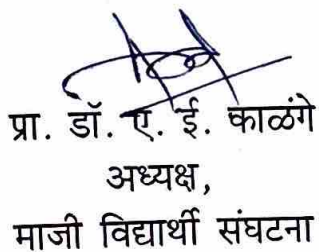 प्रा. डॉ. ए. ई. काळंगे
अध्यक्ष,
माजी विद्यार्थी संघटना